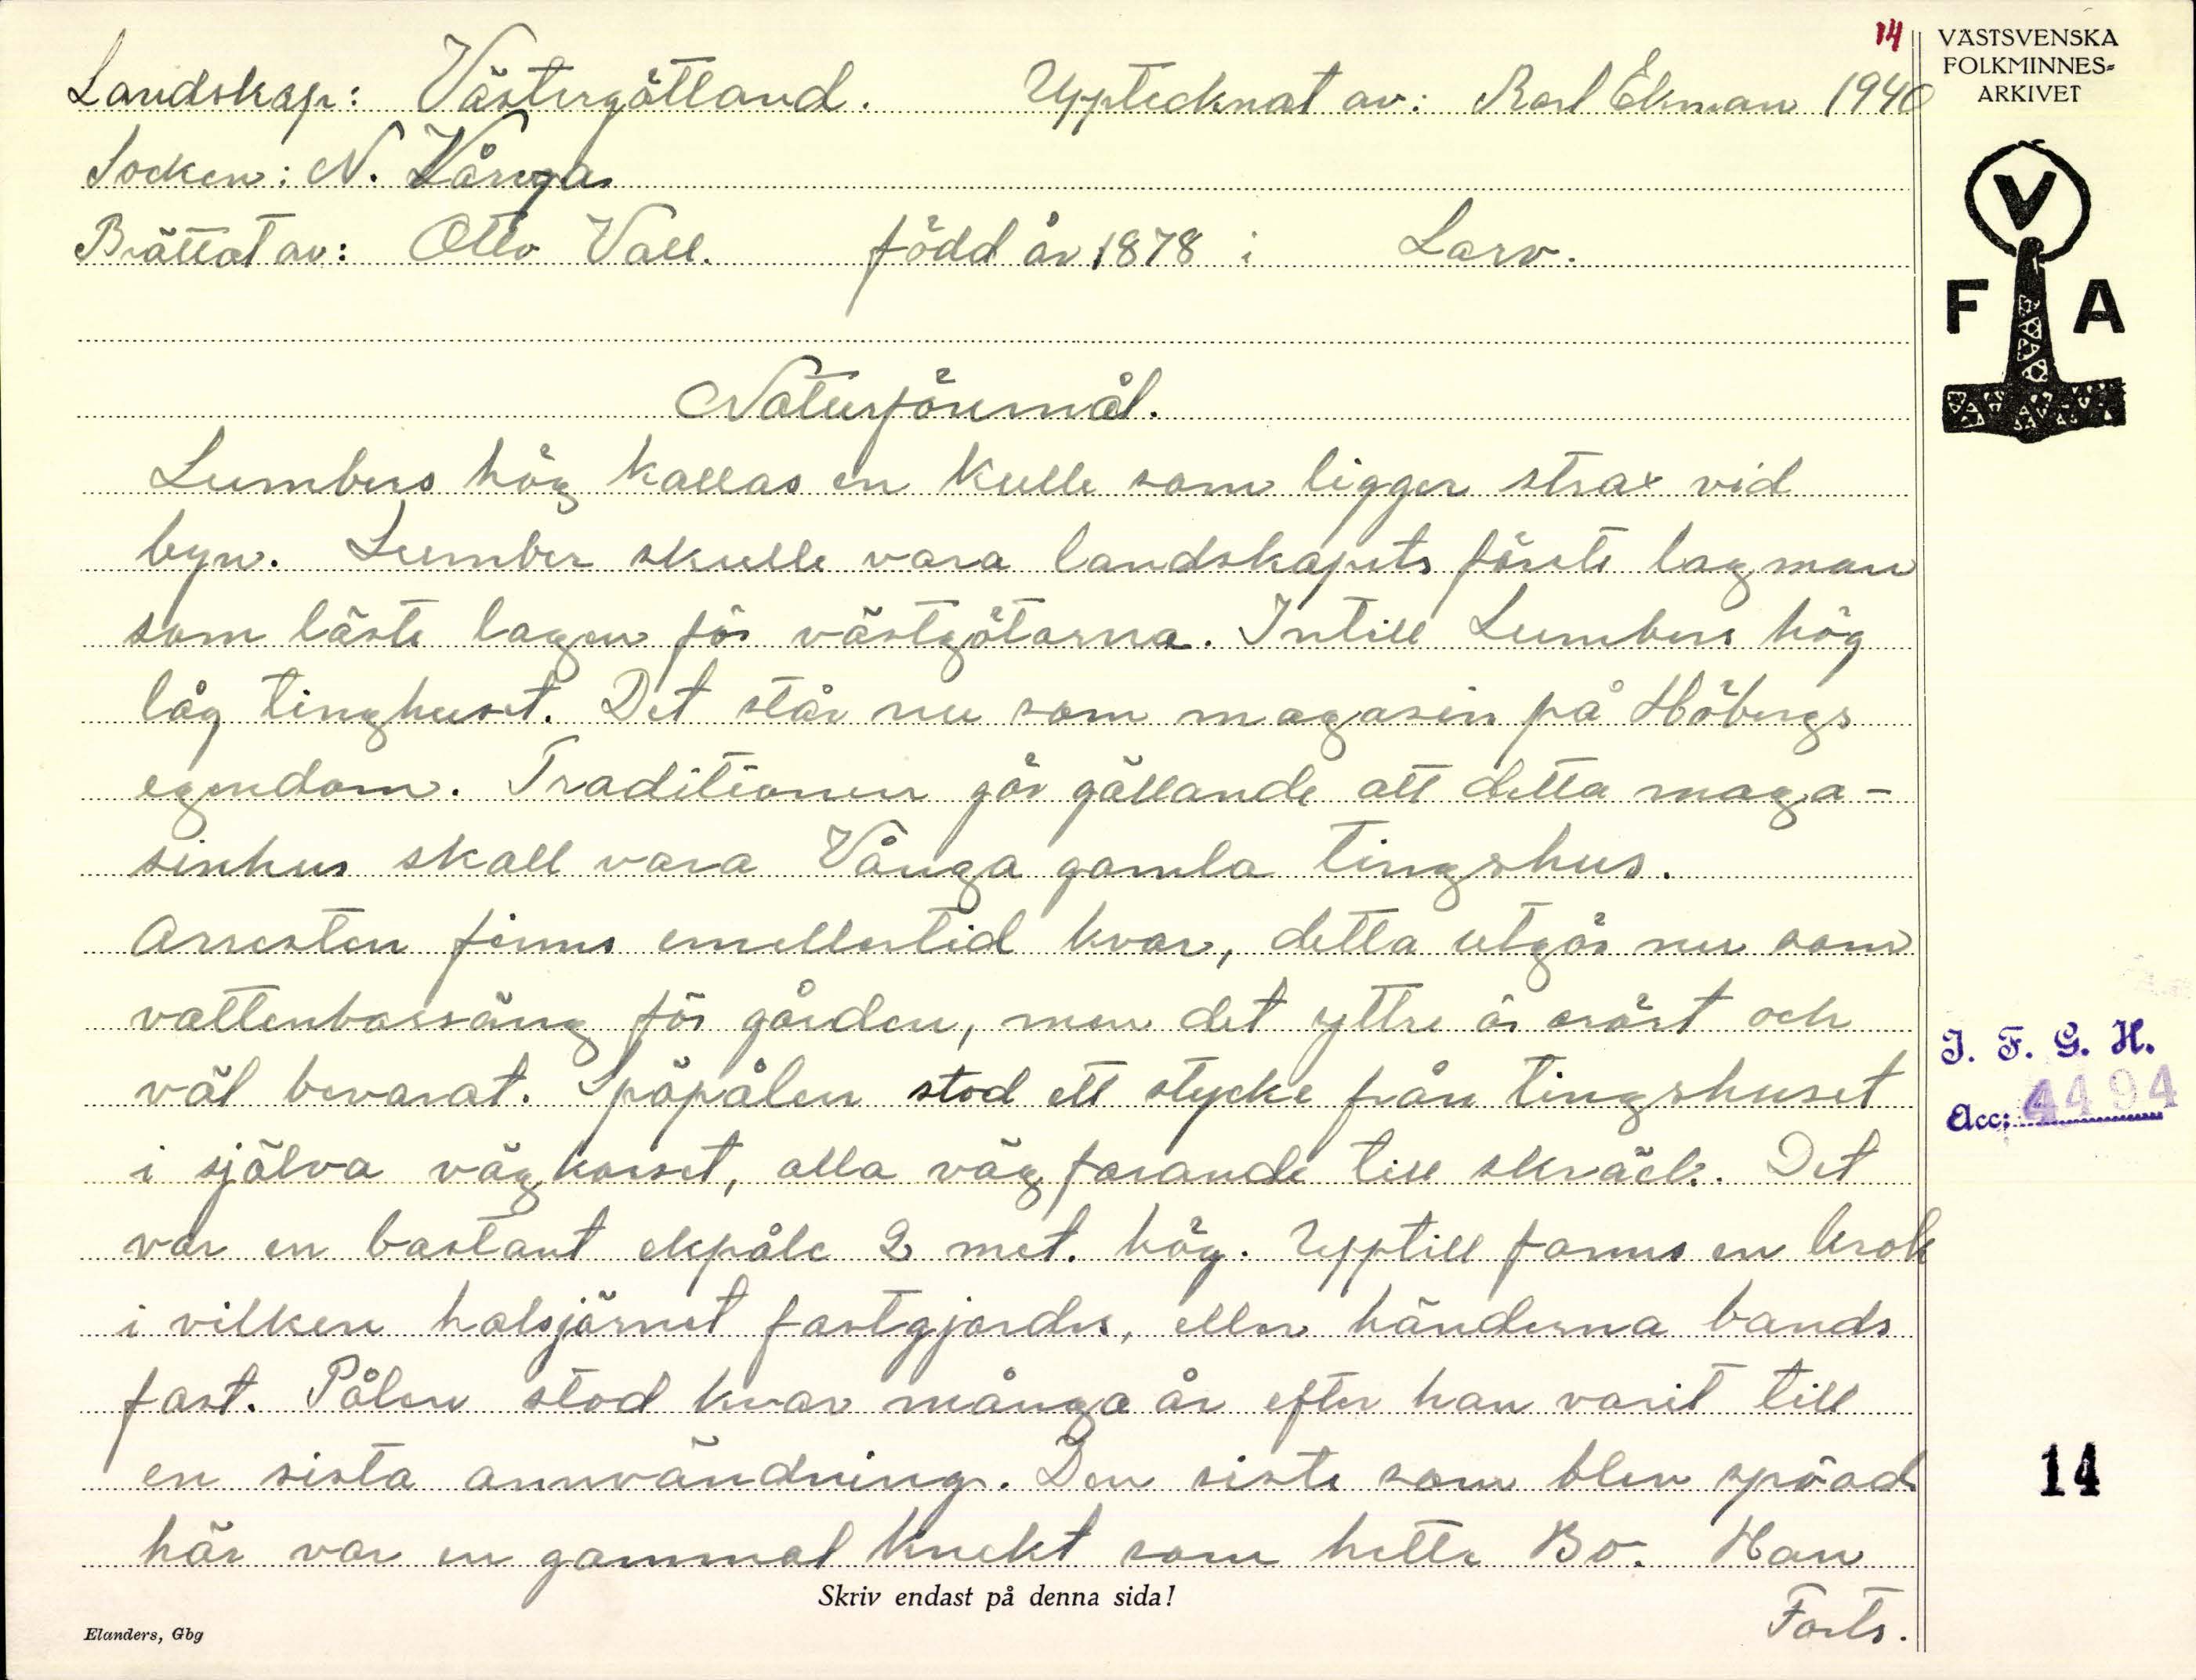 14
VÄSTSVENSKA
FOLKMINNES=
ARKIVET
Landskap: Västergötland. Upptecknat av: Karl Ekman 1940
Socken: N. Vånga
Brättat av: Otto Vall. född år 1878 i Larv.
V
F A
Naturföremål.
Lumbers hög kallas en kulle som ligger strax vid
byn. Lumber skulle vara landskapets förste lagman
som läste lagen för västgötarna. Intill Lumbers hög
låg tinghuset. Det står nu som magasin på Höbergs
egendom. Traditionen gör gällande att detta maga-
sinhus skall vara Vånga gamla tingshus.
Arresten finns emellertid kvar, detta utgör nu som
vattenbassäng för gården, men det yttre är orört och
väl bevarat. Spöpålen stod ett stycke från tingshuset
i själva vägkorset, alla vägfarande till skräck. Det
var en bastant ekpåle 2 met. hög. Upptill fanns en krok
i vilken halsjärnet fastgjordes, eller händerna bands
fast. Pålen stod kvar många år efter han varit till
en sista annvändning. Den siste som blev spöad
här var en gammal knekt som hette Bo. Han
Forts.
Skriv endast på denna sida!
Elanders, Gbg
I. F. G. H.
Acc: 4494
14